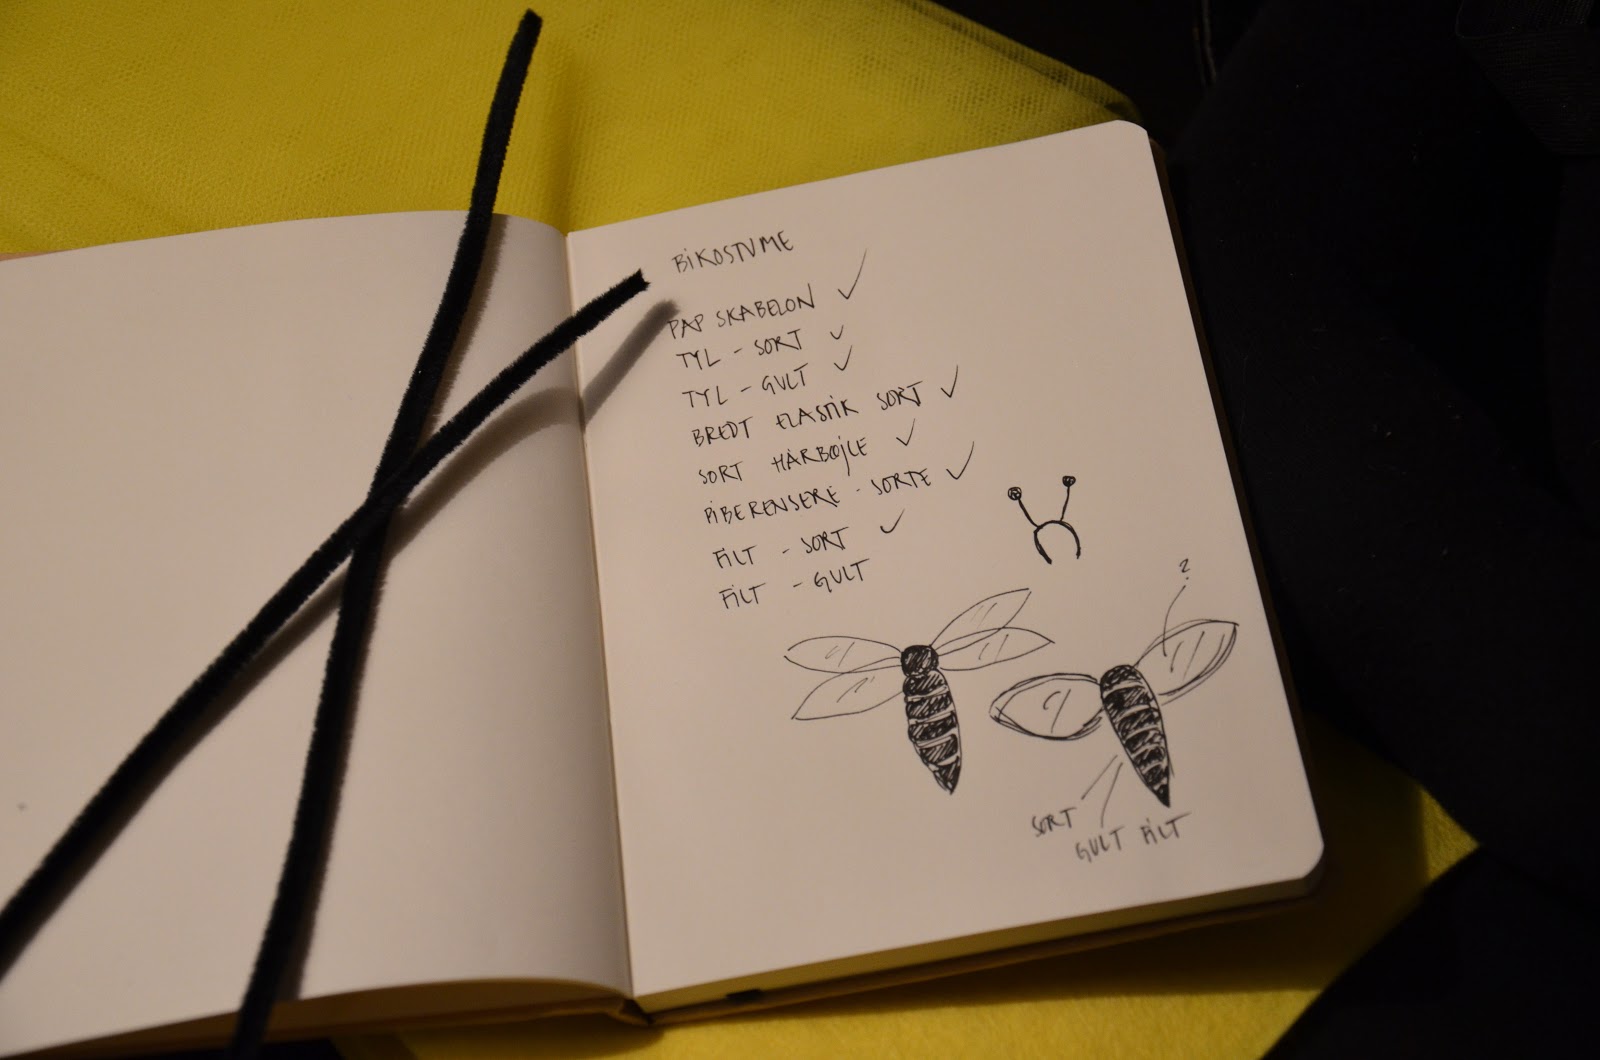 BIKOSTUME
PAP SKABELON ✓
TYL - SORT ✓
TYL - GULT ✓
BREDT ELASTIK SORT ✓
SORT HÅRBØJLE ✓
PIBERENSERE - SORTE ✓
FILT - SORT ✓
FILT - GULT
?
SORT
GULT FILT